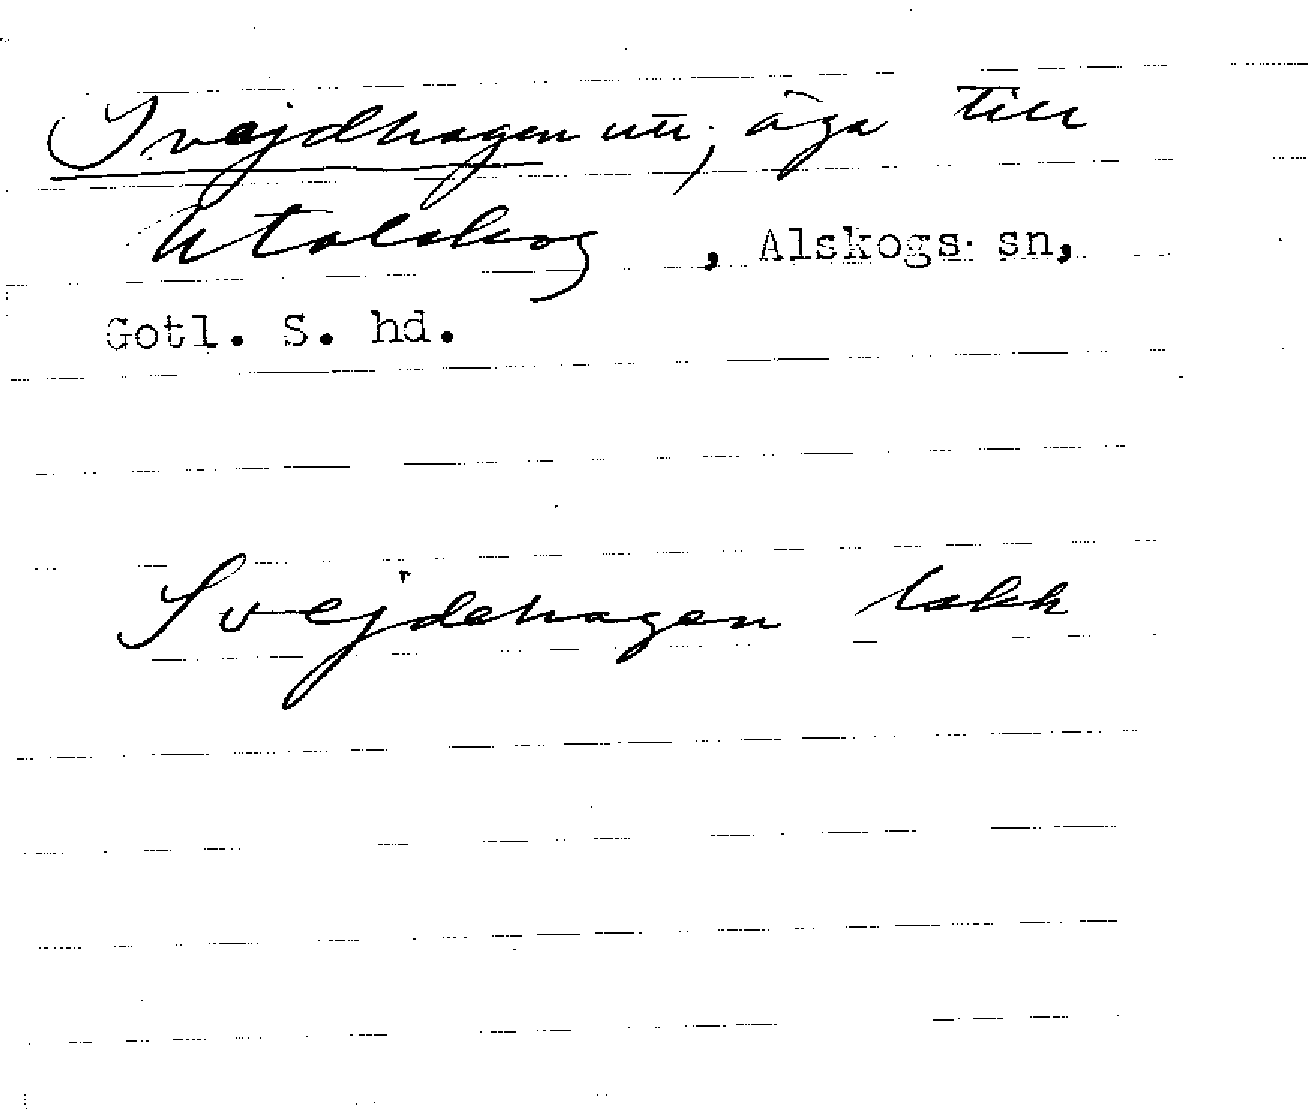 Svejdhagen utr, äga till
Utalskog, Alskogs sn,
Gotl. S. hd.
Svejdehagen lakk